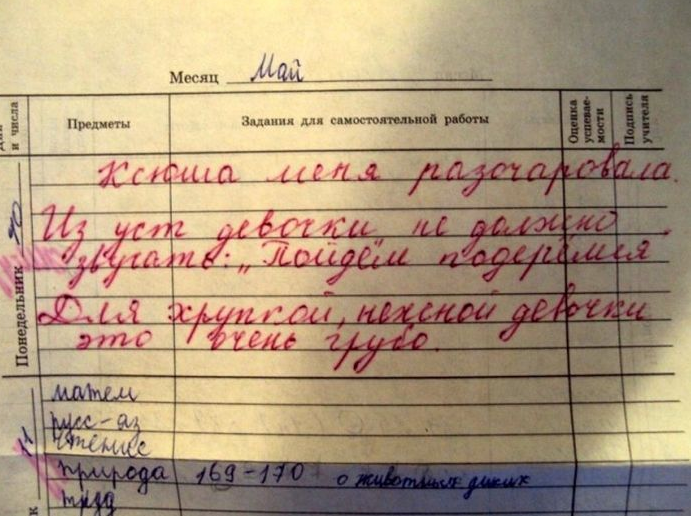 Месяц Май
и числа
Предметы
Задания для самостоятельной работы
Оценка успевае-мости
Подпись учителя
Понедельник
Ксюша меня разочаровала.
Из уст девочки не должно
звучать: „Пойдём подерёмся
Для хрупкой, нежной девочки
это очень грубо.
11
матем
русс-яз
чтение
природа 169-170 о животных диких
труд